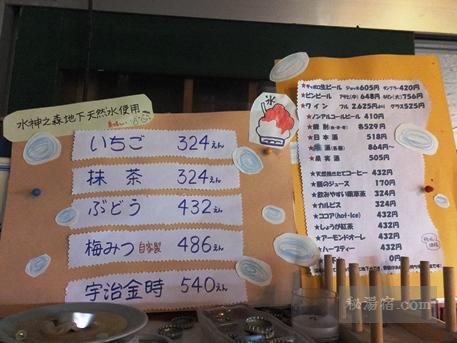 水神之森地下天然水使用
いちご 324えん
抹茶 324えん
ぶどう 432えん
梅みつ 自家製 486えん
宇治金時 540えん
氷
★サッポロ生ビール ジョッキ605円 タンブラー420円
★ビンビール 648円 756円
★ワイン フル2,625円 グラス525円
★ノンアルコールビール 410円
各529円
★日本酒 518円
864円〜
★果実酒 505円
★天然水出しコーヒー 432円
のジュース 170円
432円
★カルピス 324円
★ココア(hot・Ice) 432円
★しょうが紅茶 432円
★アーモンドオーレ 432円
★ハーブティー 432円
0円
秘湯宿.com